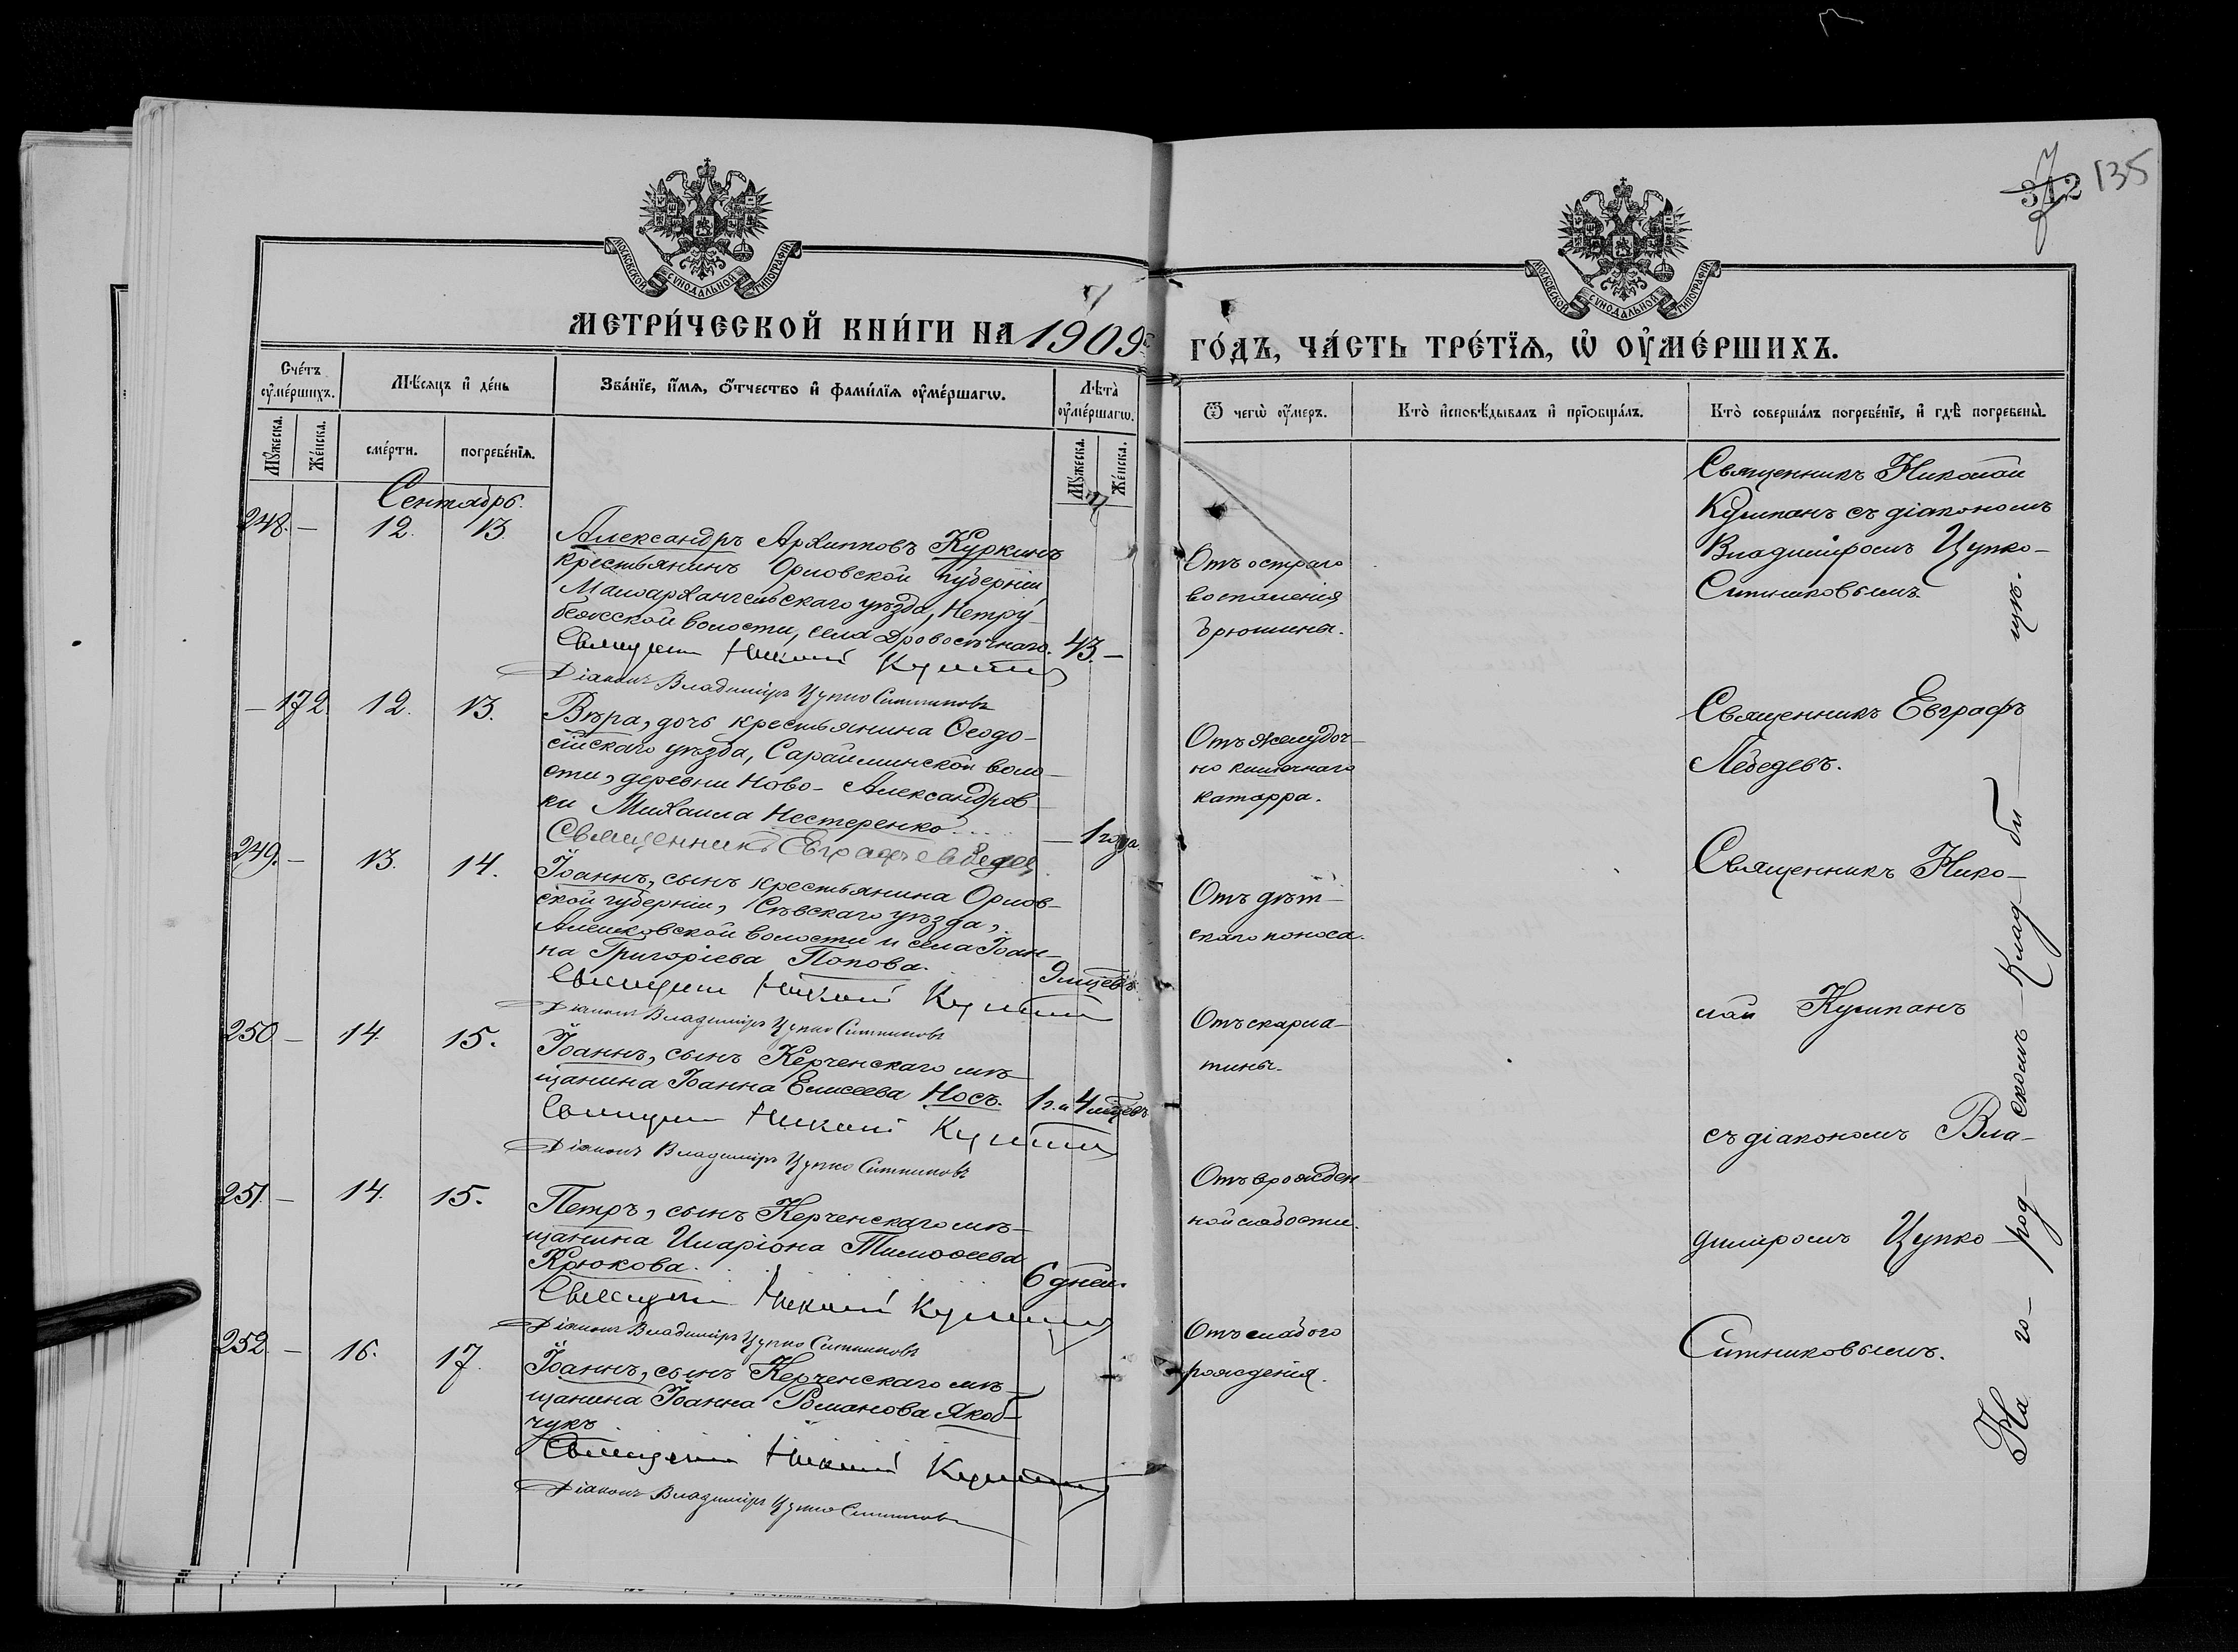 342 135
МОСКОВСКОЙ СѴНОДАЛЬНОЙ ТИПОГРАФІИ
МОСКОВСКОЙ СѴНОДАЛЬНОЙ ТИПОГРАФІИ
МЕТРИ́ЧЕСКОЙ КНИ́ГИ НА 1909
ГО́ДЪ, ЧА́СТЬ ТРЕ́ТЇѦ, Ѡ҆ ОУ҆МЕ́РШИХЪ.
Сче́тъ оу҆ме́ршихъ.
Мꙋ́жеска.
Же́нска.
Мѣ́сѧцъ и҆ де́нь
сме́рти.
погребе́нїѧ.
Зва́нїе, и҆́мѧ, ѻ҆́тчество и҆ фами́лїѧ оу҆ме́ршагѡ.
Лѣ́та оу҆ме́ршагѡ.
Мꙋ́жеска.
Же́нска.
Ѿ чегѡ̀ оу҆́меръ.
Кто̀ и҆сповѣ́дывалъ и҆ прїѡбща́лъ.
Кто̀ соверша́лъ погребе́нїе, и҆ гдѣ̀ погребены̀.
Сентябрь.
248. — 12. 13.
Александръ Архипповъ Куркинъ
крестьянинъ Орловской губерніи,
Малоархангельскаго уѣзда, Нетру-
бежской волости, села Дровосѣчнаго. 43. —
Священникъ Николай Кулипанъ
Діаконъ Владиміръ Цупко Ситниковъ
Отъ остраго
воспаленія
брюшины.
Священникъ Николай
Кулипанъ съ діакономъ
Владиміромъ Цупко-
Ситниковымъ.
— 172. 12. 13.
Вѣра, дочь крестьянина Ѳеодо-
сійскаго уѣзда, Сарайминской воло-
сти, деревни Ново-Александров-
ки Михаила Нестеренко. — 1 года.
Священникъ Евграфъ Лебедев
Отъ желудоч-
но кишечнаго
катарра.
Священникъ Евграфъ
Лебедевъ.
249. — 13. 14.
Іоаннъ, сынъ крестьянина Орлов-
ской губерніи, Сѣвскаго уѣзда,
Алешковской волости и села Іоан-
на Григоріева Попова. 9 мцевъ
Священникъ Николай Кулипанъ
Діаконъ Владиміръ Цупко Ситниковъ
Отъ дѣт-
скаго поноса.
Священникъ Нико-
250. — 14. 15.
Іоаннъ, сынъ Керченскаго мѣ-
щанина Іоанна Елисеева Носъ. 1 г. и 4 мцевъ
Священникъ Николай Кулипанъ
Діаконъ Владиміръ Цупко Ситниковъ
Отъ скарла-
тины.
лай Кулипанъ
съ діакономъ Вла-
251. — 14. 15.
Петръ, сынъ Керченскаго мѣ-
щанина Иларіона Тимоѳеева
Крюкова. 6 дней.
Священникъ Николай Кулипанъ
Діаконъ Владиміръ Цупко Ситниковъ
Отъ врожден-
ной слабости.
диміромъ Цупко-
252. — 16. 17.
Іоаннъ, сынъ Керченскаго мѣ-
щанина Іоанна Романова Якоб-
чукъ
Священникъ Николай Кулипанъ
Діаконъ Владиміръ Цупко Ситниковъ
Отъ слабого
рожденія.
Ситниковымъ.
На го-род-скомъ Клад-би-щѣ.